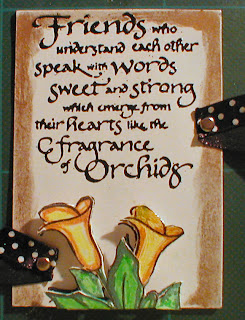 Friends who
understand each other
speak with words
sweet and strong
which emerge from
their hearts like the
fragrance
of Orchids